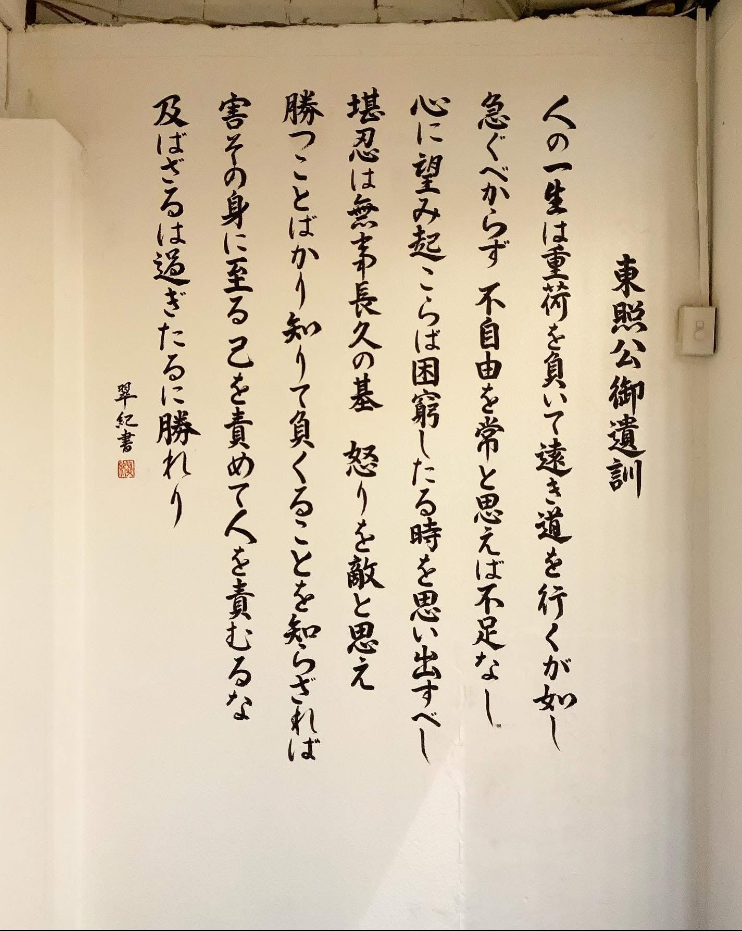 東照公御遺訓
人の一生は重荷を負いて遠き道を行くが如し
急ぐべからず 不自由を常と思えば不足なし
心に望み起こらば困窮したる時を思い出すべし
堪忍は無事長久の基 怒りを敵と思え
勝つことばかり知りて負くることを知らざれば
害その身に至る 己を責めて人を責むるな
及ばざるは過ぎたるに勝れり
翠紀書